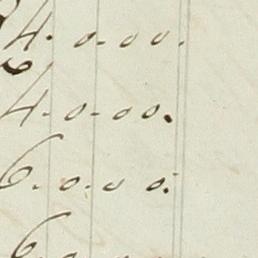 4.0.00.
4.0.00.
6.0.00.
6